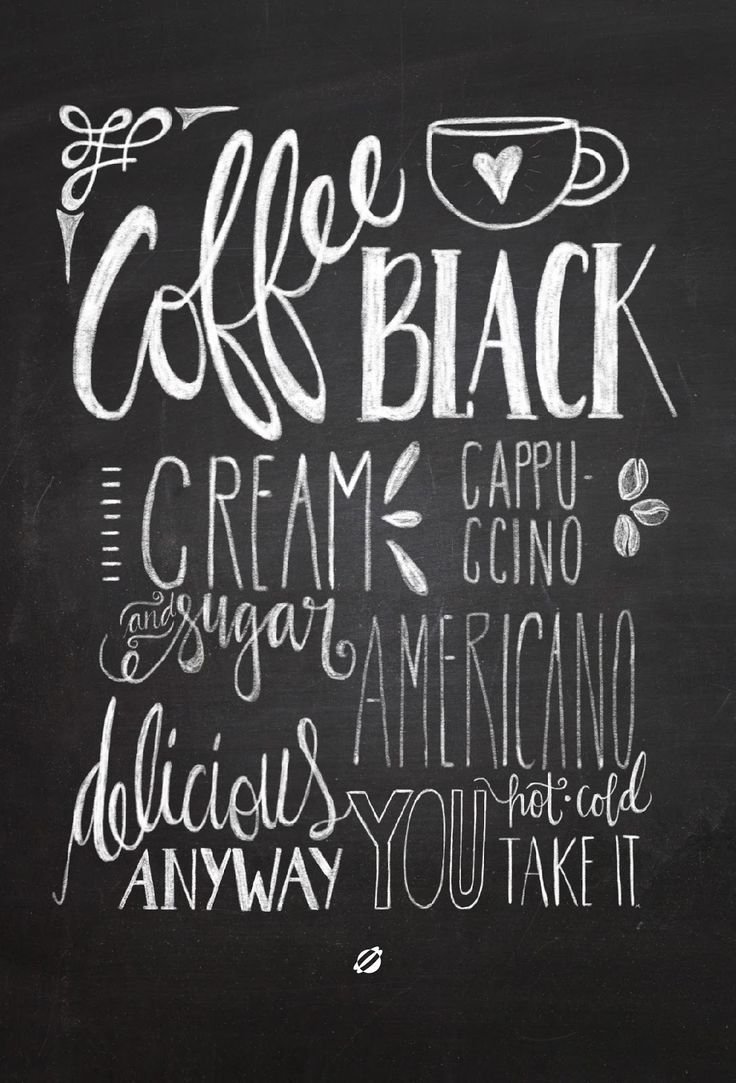 Coffee
BLACK
CREAM
CAPPU-
CCINO
and sugar
AMERICANO
delicious
hot · cold
ANYWAY YOU TAKE IT